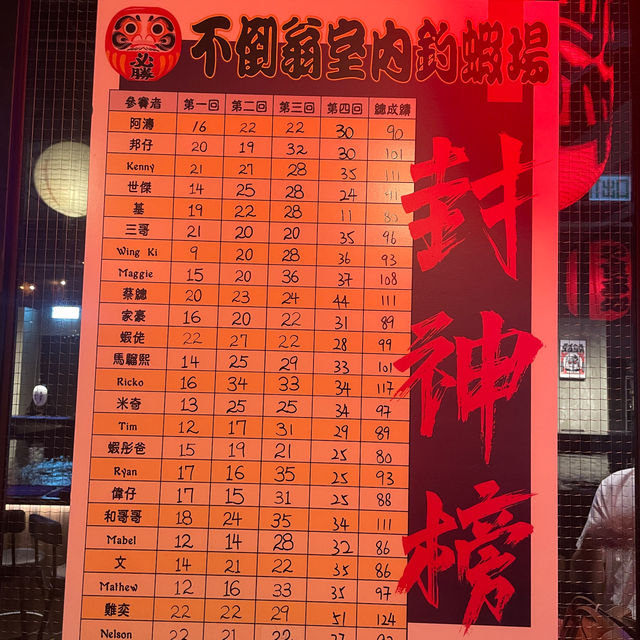 必勝
不倒翁室內釣蝦場
封神榜
參賽者 第一回 第二回 第三回 第四回 總成績
阿濤 16 22 22 30 90
邦仔 20 19 32 30 101
Kenny 21 27 28 35 111
世傑 14 25 28 24
基 19 22 28 11
三哥 21 20 20 35 96
Wing Ki 9 20 28 36 93
Maggie 15 20 36 37 108
蔡總 20 23 24 44 111
家豪 16 20 22 31 89
蝦佬 22 27 22 28 99
馬騮熙 14 25 29 33 101
Ricko 16 34 33 34 117
米奇 13 25 25 34 97
Tim 12 17 31 29 89
蝦彤爸 15 19 21 25 80
Ryan 17 16 35 25 93
偉仔 17 15 31 25 88
和哥哥 18 24 35 34 111
Mabel 12 14 28 32 86
文 14 21 22 35 86
Mathew 12 16 33 35 97
雞奕 22 22 29 51 124
Nelson 22 21 22
出口